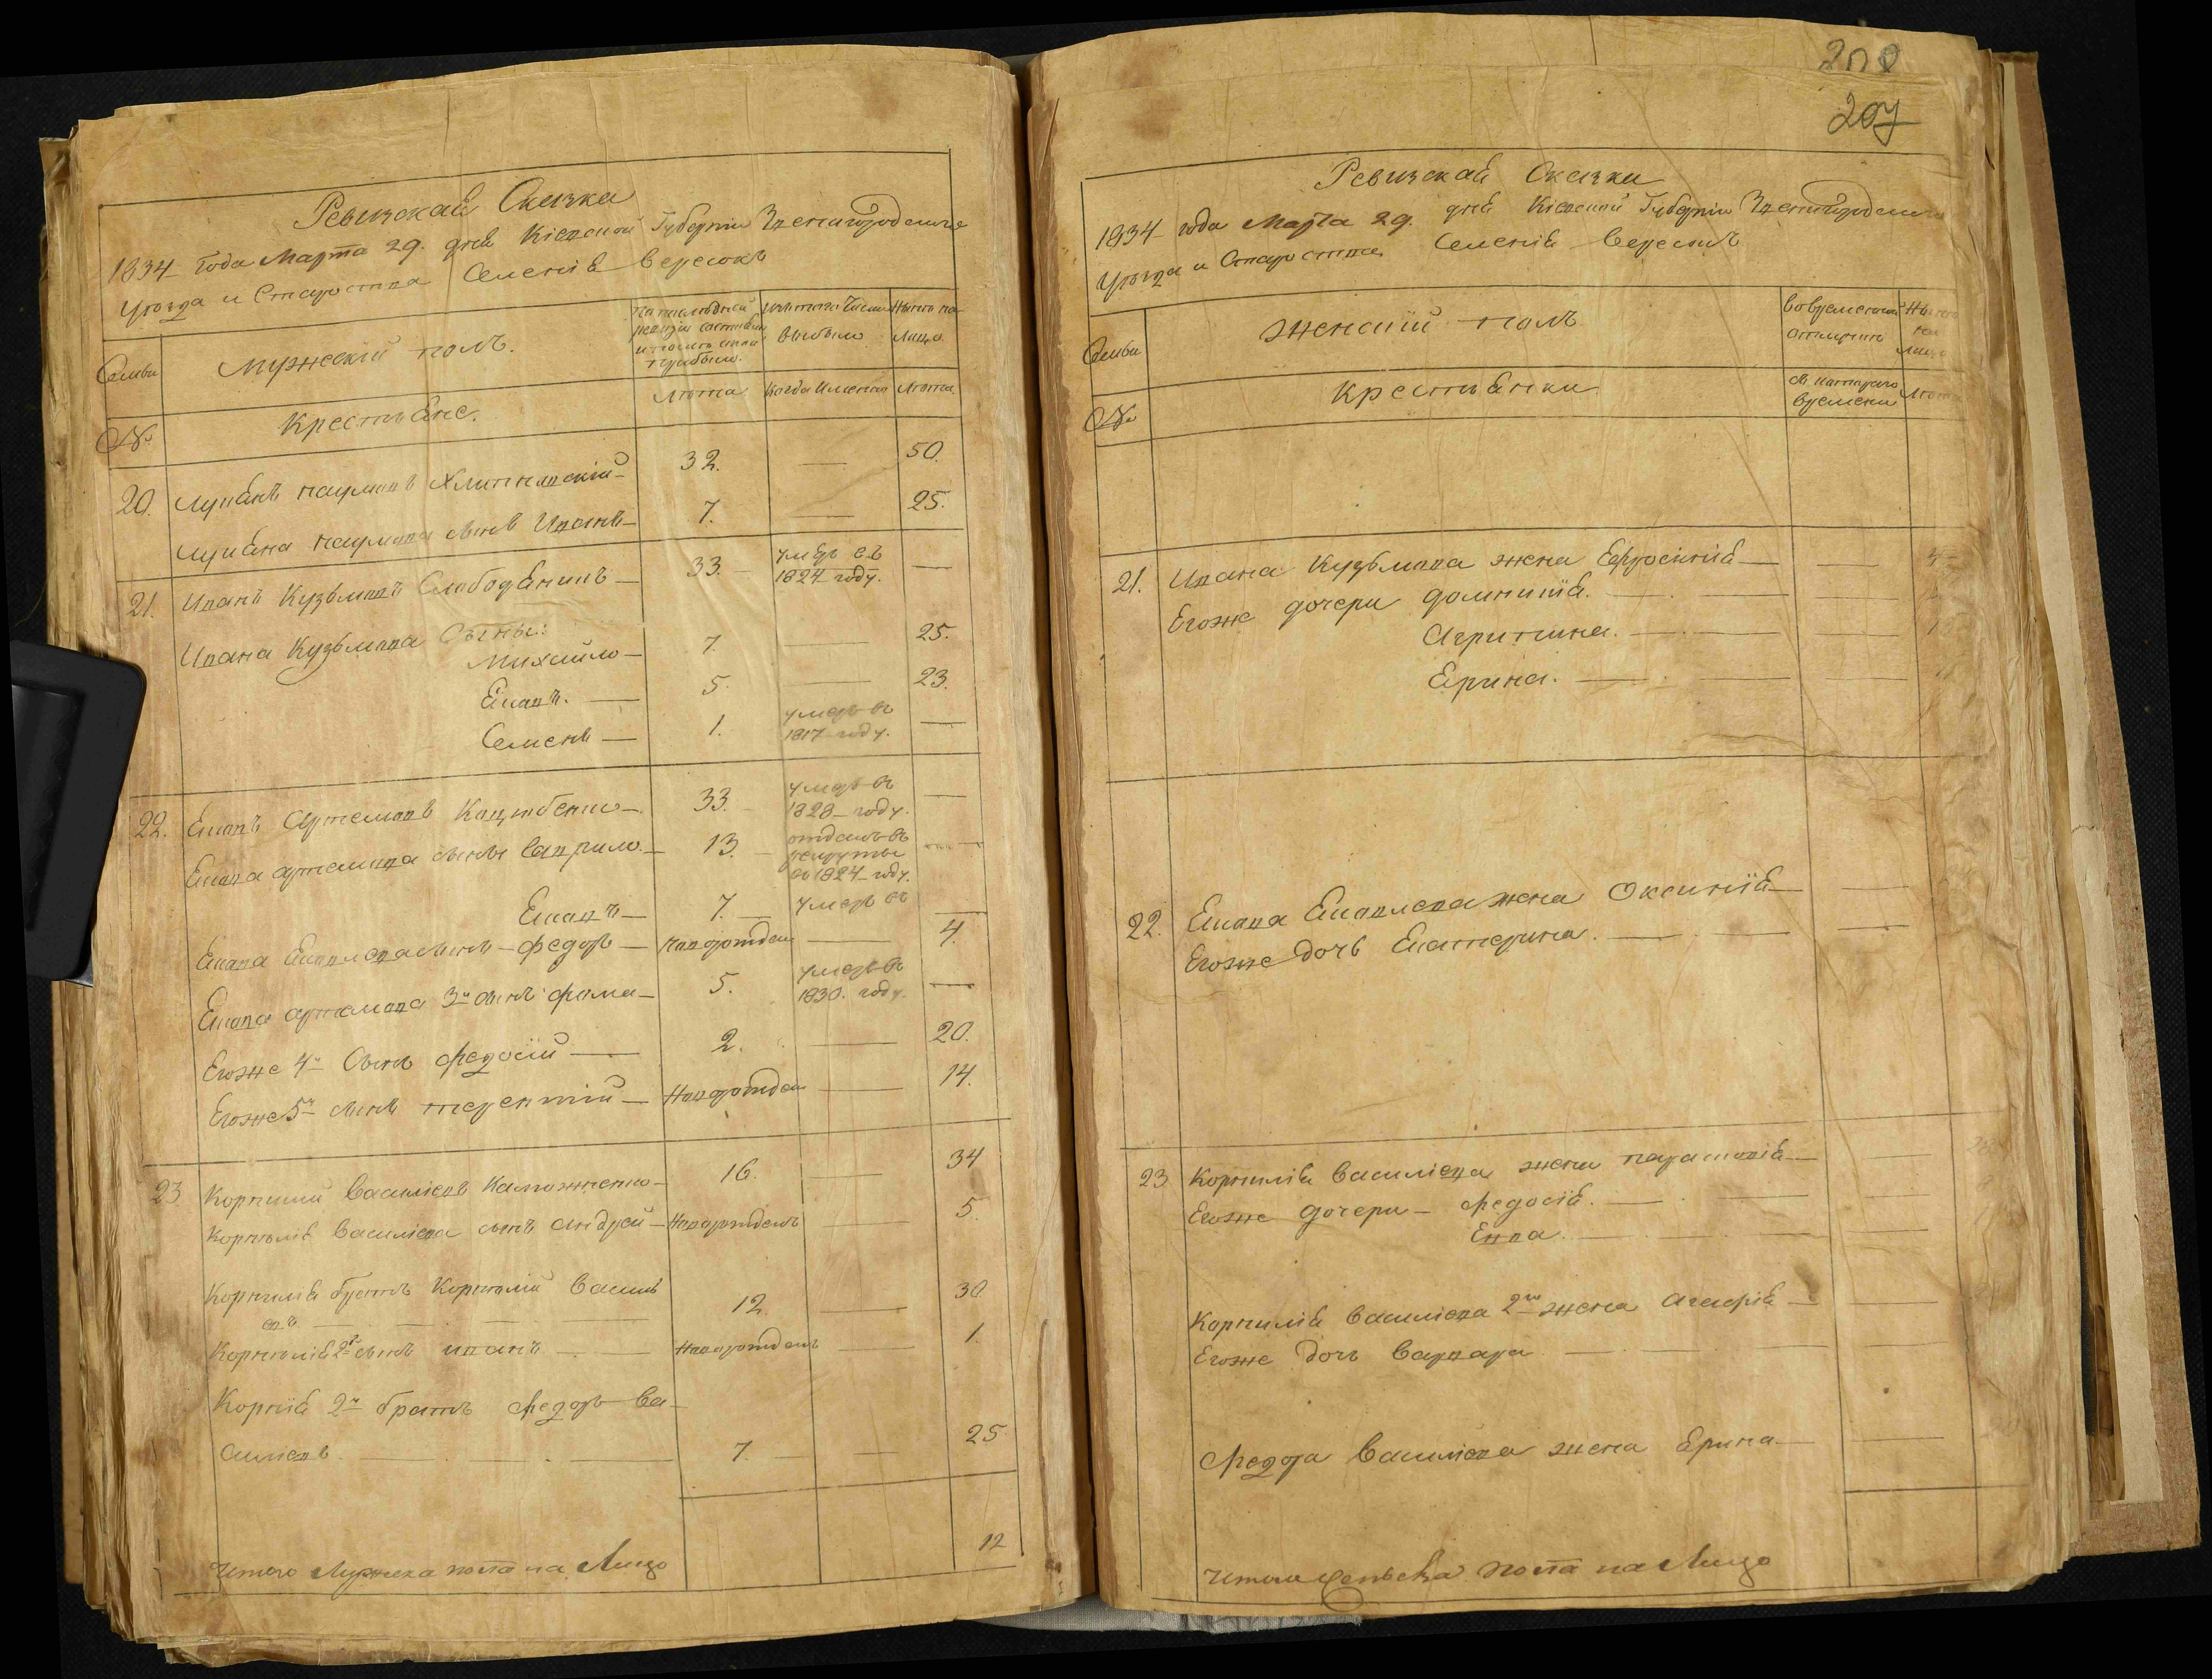 Ревизская Сказка
1834 Года Марта 29. дня Кіевской Губерніи Звенигородскаго
Уѣзда и Староства Селенія Вересокъ
Семьи
Мужескій полъ.
По послѣдней ревизіи состояло и послѣ оной прибыло.
Изъ того числа выбыло
Нынѣ на лицо.
№
Крестьяне.
Лѣта
Когда Именно
Лѣта.
20. Лукьянъ Наумовъ 32. — 50.
Лукьяна Наумова сынъ Иванъ — 7. — 25.
21. Иванъ Кузьмовъ Слободянинъ — 33. — умеръ въ 1824 году. —
Ивана Кузьмова Сыны:
Михайло — 7. — 25.
Якавъ. — 5. — 23.
Семенъ — 1. умеръ въ 1817 году. —
22. Якавъ Артемовъ 33. — умеръ въ 1828 году. —
Якава Артемова сынъ Гаврило. — 13. — отданъ въ рекруты въ 1824 году.
Якавъ — 7. — умеръ въ —
Якава Яковлева сынъ — Федоръ — новорожден — 4.
Якава Артемова 3й сынъ Фома — 5. умеръ въ 1830. году. —
Егоже 4й Сынъ Федосій — 2. — 20.
Егоже 5й сынъ Терентій — новорожден — 14.
23 Корнилій Василіевъ 16. — 34
Корнилія Василіева сынъ Андрей — Новорожденъ — 5.
Корнилія братъ Корнилій Василі
евъ. — 12. — 30.
Корнилія 2й сынъ Иванъ — Новорожденъ — 1.
Корнія 2й братъ Федоръ Ва-
силіевъ. — 7. — 25
Итого Мужеска пола на Лицо 12
208
207
Ревизская Сказка
1834 года Марта 29. дня Кіевской Губерніи Звенигородскаго
Уѣзда и Староства Селенія Вересокъ
Семьи
Женскій полъ.
Во временной отлучкѣ
Нынѣ на лицо
№
Крестьянки
Съ котораго времени
Лѣта
21. Ивана Кузьмова жена Ефросинія —
Егоже дочери Домникія. —
Агрипина. —
Ерина. —
22. Якава Яковлева жена Оксинія —
Егоже дочь Екатерина. —
23 Корнилія Василіева жена Парасковія —
Егоже дочери — Федосія. —
Евва. —
Корнилія Василіева 2го жена Агафія —
Егоже дочь Варвара —
Федора Василіева жена Ерина —
Итого Женска пола на Лицо